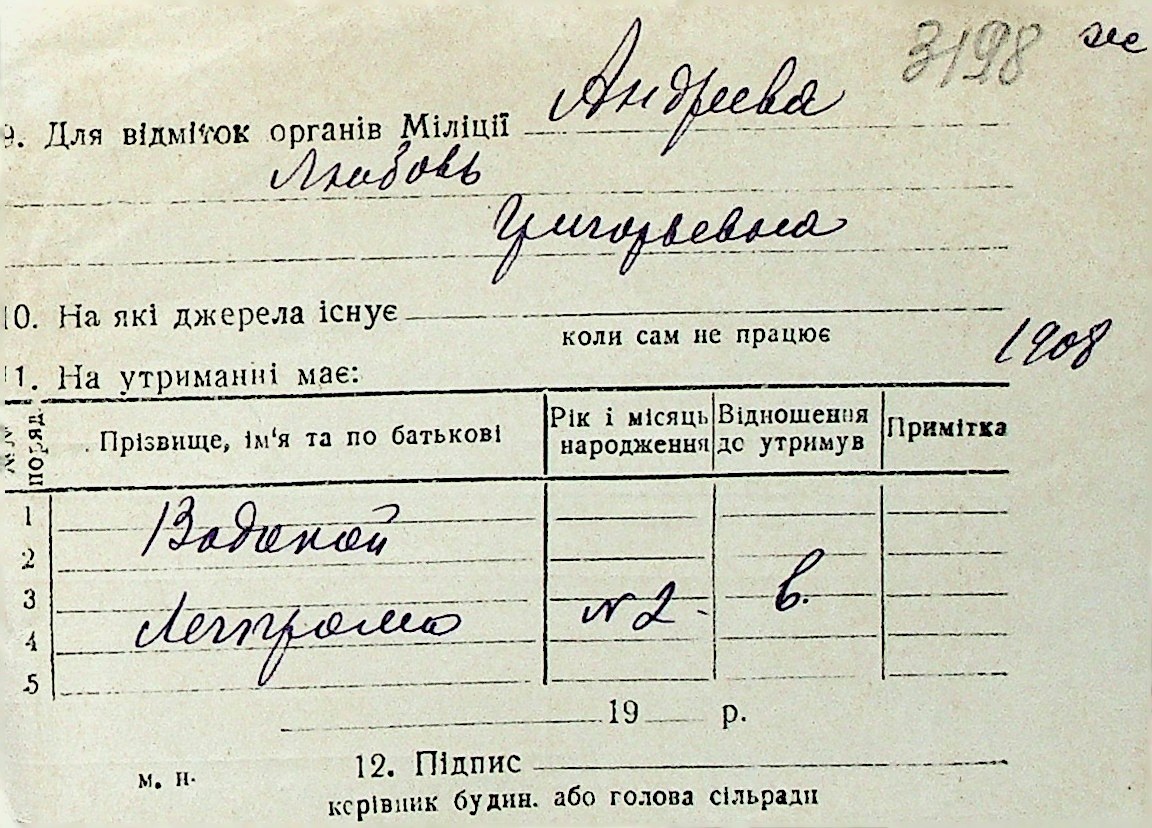 3198 ж
9. Для відміток органів Міліції Андреева
Любовь
Григорьевна
10. На які джерела існує
коли сам не працює
1908
11. На утриманні має:
№№ поряд. Прізвище, ім'я та по батькові Рік і місяць народження Відношення до утримув Примітка
1
Водокай
2
3
Легпрома №2 - в.
4
5
19 р.
м. н. 12. Підпис
керівник будин. або голова сільради